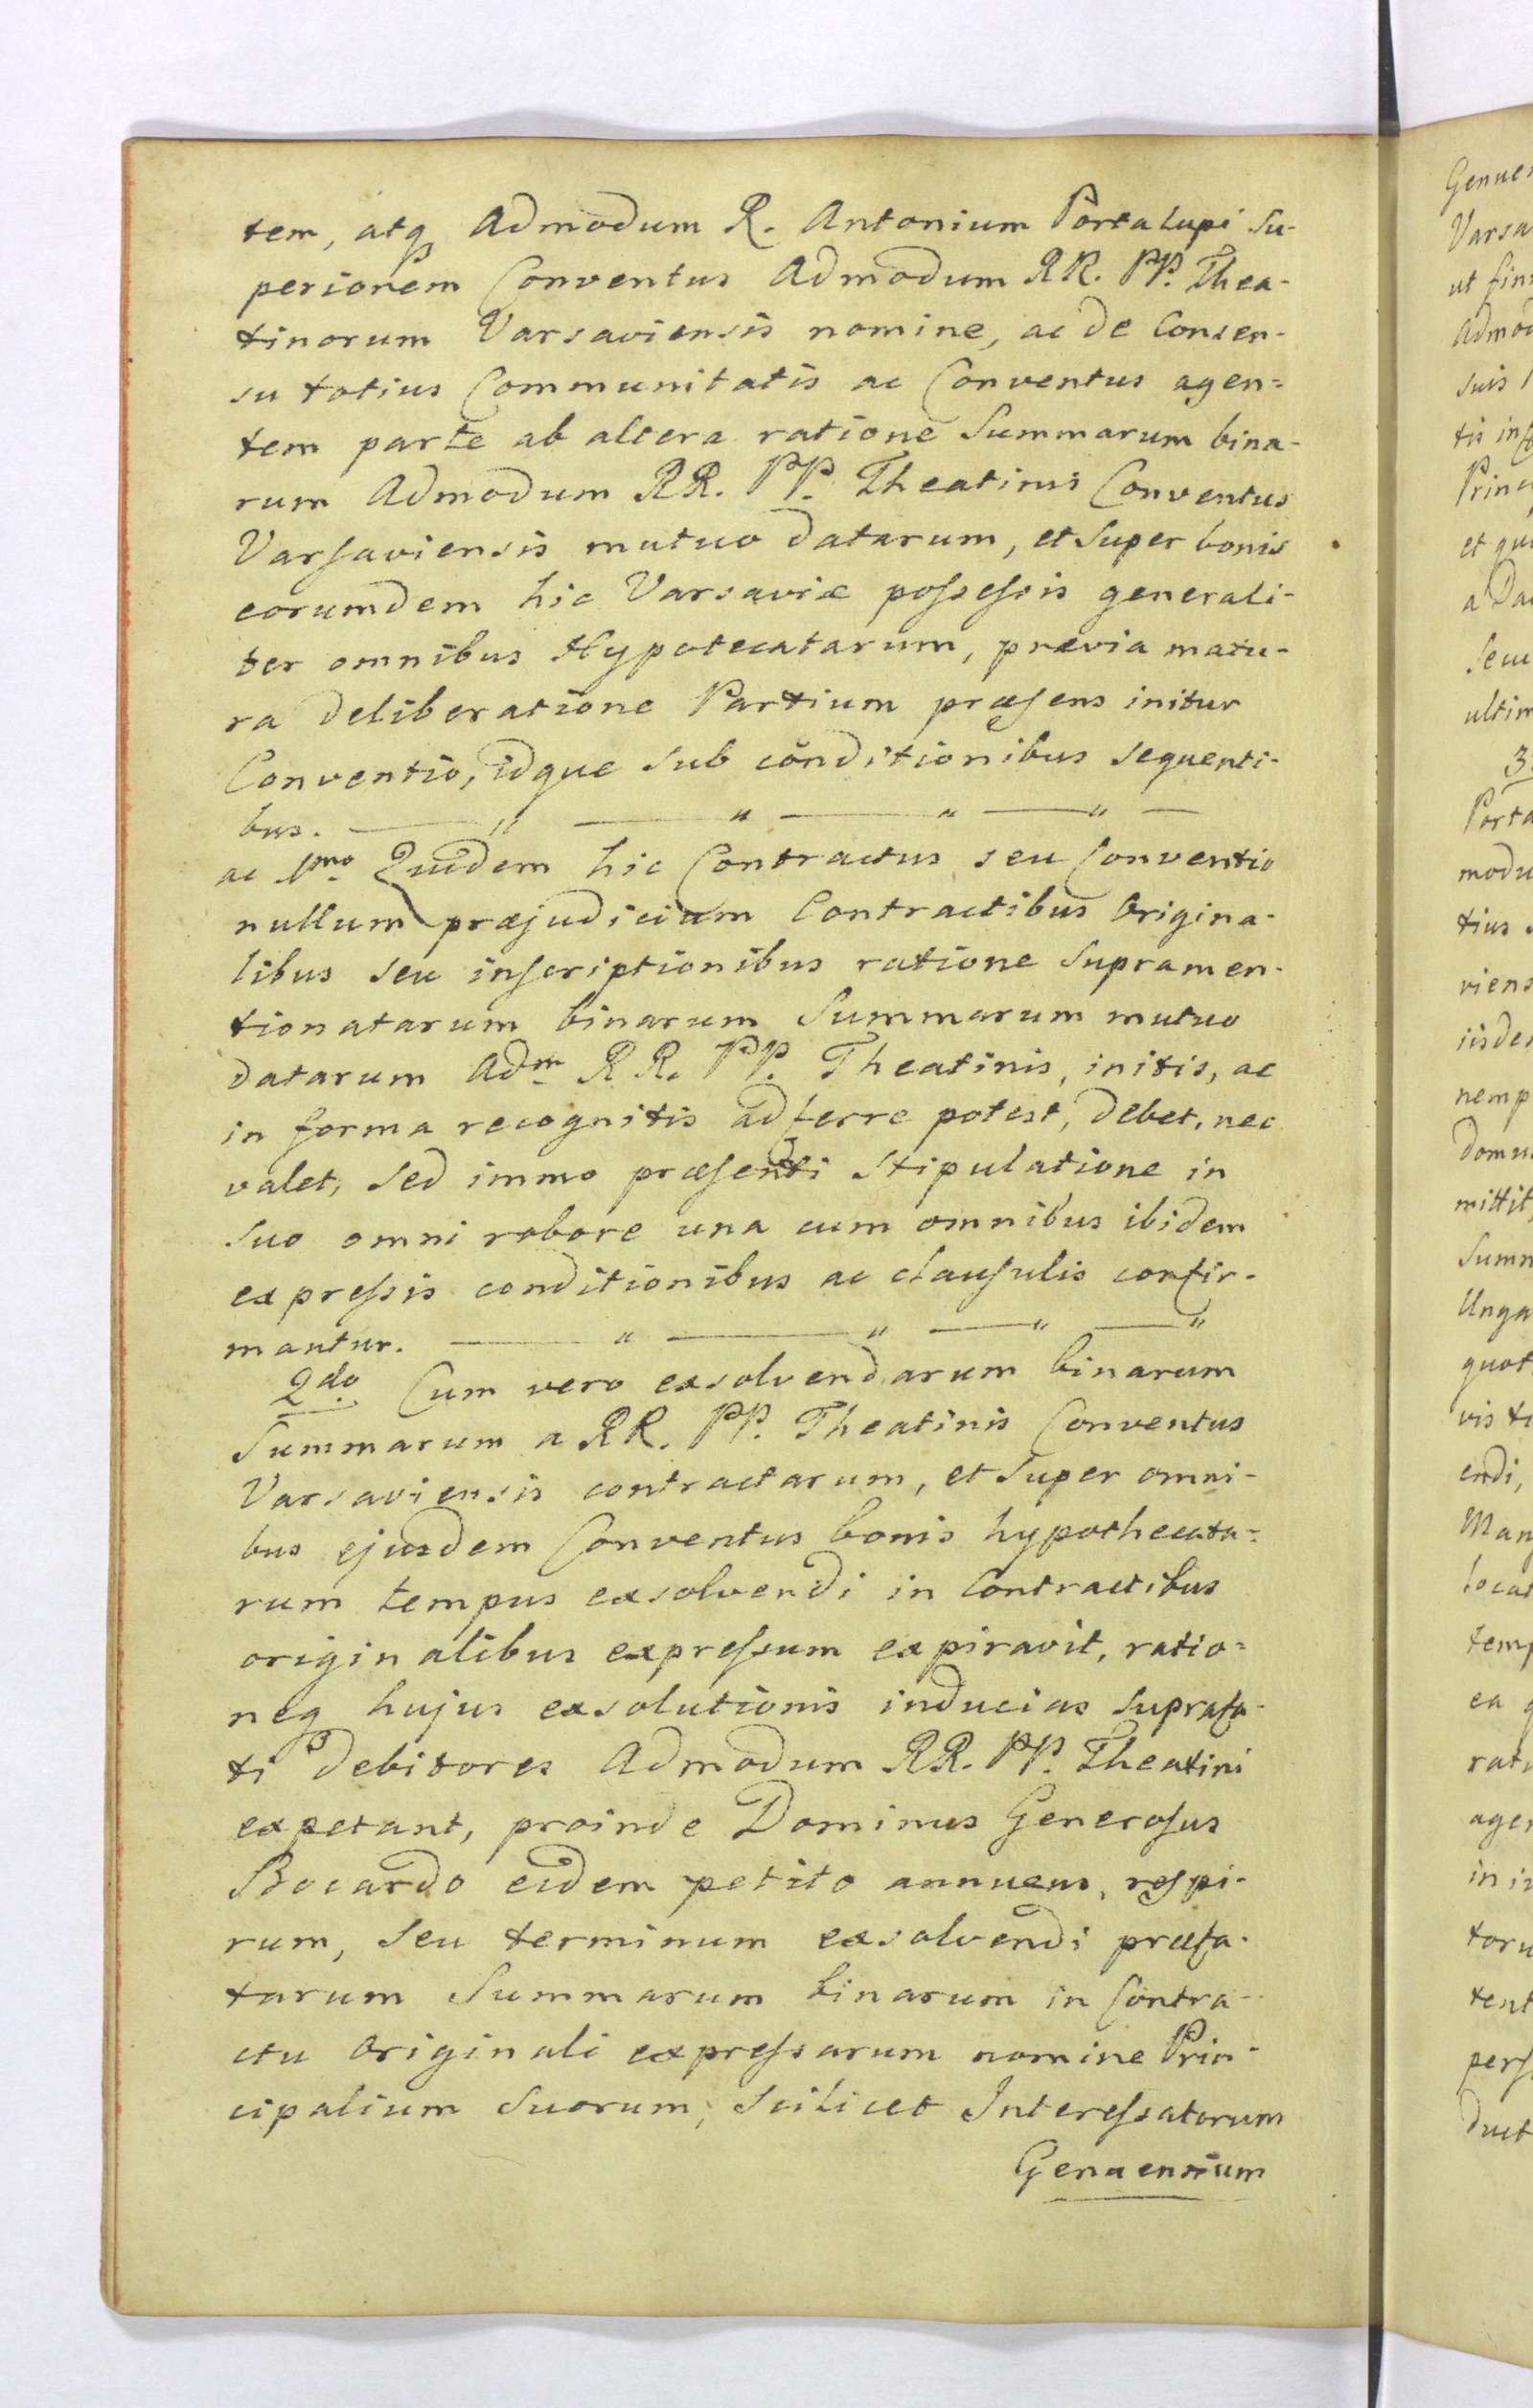 tem, atq Admodum R. Antonium Portalupi Su-
periorem Conventus Admodum RR. PP. Thea-
tinorum Varsaviensis nomine, ac de Consen-
su totius Communitatis ac Conventus agen=
tem parte ab altera ratione Summarum bina-
rum Admodum RR. PP. Theatinis Conventus
Varsaviensis mutuo datarum, et super bonis
eorumdem hic Varsaviæ possessis generali-
ter omnibus Hypotecatarum, prævia matu-
ra deliberatione Partium præsens initur
Conventio, idque sub conditionibus sequenti-
bus. — " — " — " — " —
ac 1mo. Quidem hic Contractus seu Conventio
nullum præjudicium Contractibus Origina-
libus seu inscriptionibus ratione supramen-
tionatarum binarum Summarum mutuo
datarum Adm. RR. PP. Theatinis, initis, ac
in forma recognitis adferre potest, debet, nec
valet, sed immo præsenti stipulatione in
suo omni robore una cum omnibus ibidem
expressis conditionibus ac clausulis confir-
mantur. — " — " — " — "
2do. Cum vero exsolvendarum binarum
Summarum a RR. PP. Theatinis Conventus
Varsaviensis contractarum, et super omni-
bus ejusdem Conventus bonis hypothecata=
rum tempus exsolvendi in Contractibus
originalibus expressum expiravit, ratio=
neq hujus exsolutionis inducias suprafa-
ti debitores Admodum RR. PP. Theatini
expetant, proinde Dominus Generosus
Bocardo eidem petito annuens, respi-
rum, seu terminum exsolvendi præfa-
tarum Summarum binarum in Contra-
ctu Originali expressarum nomine Prin-
cipalium Suorum, scilicet Interessatorum
Genuensium
Genue
Varsa
ut fin
Admod
suis
tis in
Princ
et qu
a Da
seu
ultim
3
Porta
modu
tius
viens
iisde
nemp
domu
mittit
Summ
Unga
quot
vis
endi,
Man
locat
temp
ea
rat
agen
in
toru
tent
pers
duct